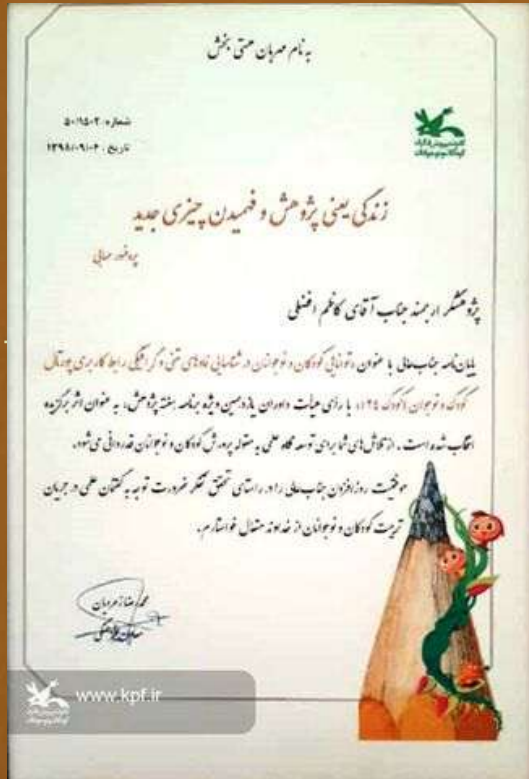 به نام مهربان هستی بخش
شماره: ۵۰/۱۵۰۲
تاریخ: ۱۳۹۸/۰۹/۰۴
کانون پرورش فکری
کودکان و نوجوانان
زندگی یعنی پژوهش و فهمیدن چیزی جدید
پروفسور حسابی
پژوهشگر ارجمند جناب آقای کاظم افضلی
پایان‌نامه جناب‌عالی با عنوان «توانایی کودکان و نوجوانان در شناسایی نمادهای متنی و گرافیکی رابط کاربری پورتال
کودک و نوجوان (کودک ۱۲۴)» با رای هیأت داوران یازدهمین ویژه برنامه هفته پژوهش، به عنوان اثر برگزیده
انتخاب شده است. از تلاش‌های شما برای توسعه نگاه علمی به مقوله پرورش کودکان و نوجوانان قدردانی می‌شود.
موفقیت روزافزون جناب‌عالی را در راستای تحقق تفکر ضرورت توجه به گفتمان علمی در جریان
تربیت کودکان و نوجوانان از خداوند متعال خواستارم.
محمدرضا زمردیان
معاون فرهنگی
www.kpf.ir